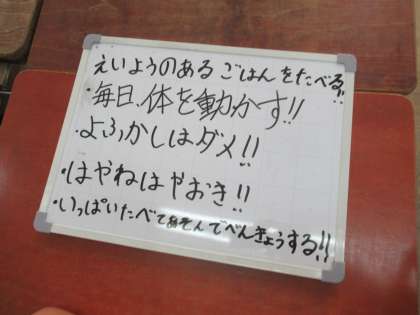 えいようのある ごはんをたべる!!
・毎日、体を動かす!!
・よふかしはダメ!!
・はやねはやおき!!
・いっぱいたべてあそんでべんきょうする!!